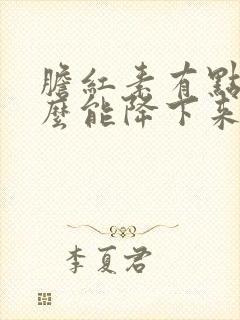 膽紅素有點
麼能降下來
李夏君